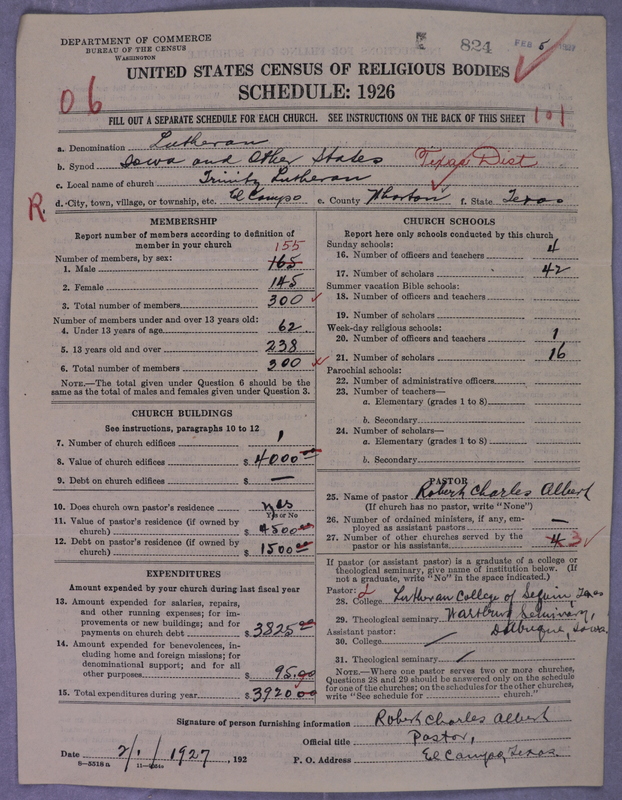 DEPARTMENT OF COMMERCE
BUREAU OF THE CENSUS
WASHINGTON
824
FEB 5 1927
UNITED STATES CENSUS OF RELIGIOUS BODIES
SCHEDULE: 1926
06
101
FILL OUT A SEPARATE SCHEDULE FOR EACH CHURCH. SEE INSTRUCTIONS ON THE BACK OF THIS SHEET
a. Denomination Lutheran
b. Synod Iowa and Other States Texas Dist
c. Local name of church Trinity Lutheran
d. City, town, village, or township, etc. El Campo e. County Wharton f. State Texas
R.
MEMBERSHIP
Report number of members according to definition of
member in your church
155
Number of members, by sex:
1. Male 165
2. Female 145
3. Total number of members 300
Number of members under and over 13 years old:
4. Under 13 years of age 62
5. 13 years old and over 238
6. Total number of members 300
NOTE.—The total given under Question 6 should be
same as the total of males and females given under Question 3.
CHURCH BUILDINGS
See instructions, paragraphs 10 to 12
7. Number of church edifices 1
8. Value of church edifices $ 4000.00
9. Debt on church edifices $ —
10. Does church own pastor's residence yes
Yes or No
11. Value of pastor's residence (if owned by
church) $ 4500.00
12. Debt on pastor's residence (if owned by
church) $ 1500.00
EXPENDITURES
Amount expended by your church during last fiscal year
13. Amount expended for salaries, repairs,
and other running expenses; for im-
provements or new buildings; and for
payments on church debt $ 3825.00
14. Amount expended for benevolences, in-
cluding home and foreign missions; for
denominational support; and for all
other purposes $ 95.00
15. Total expenditures during year $ 3920.00
CHURCH SCHOOLS
Report here only schools conducted by this church
Sunday schools:
16. Number of officers and teachers 4
17. Number of scholars 42
Summer vacation Bible schools:
18. Number of officers and teachers
19. Number of scholars
Week-day religious schools:
20. Number of officers and teachers 1
21. Number of scholars 16
Parochial schools:
22. Number of administrative officers
23. Number of teachers—
a. Elementary (grades 1 to 8)
b. Secondary
24. Number of scholars—
a. Elementary (grades 1 to 8)
b. Secondary
PASTOR
25. Name of pastor Robert Charles Albert
(If church has no pastor, write "None")
26. Number of ordained ministers, if any, em-
ployed as assistant pastors —
27. Number of other churches served by the
pastor or his assistants 4 3
If pastor (or assistant pastor) is a graduate of a college or
theological seminary, give name of institution below. (If
not a graduate, write "No" in the space indicated.)
Pastor: 2
28. College Lutheran College of Seguin Texas
29. Theological seminary Wartburg Seminary,
Dubuque, Iowa.
Assistant pastor:
30. College
31. Theological seminary
NOTE.—Where one pastor serves two or more churches,
Questions 28 and 29 should be answered only on the schedule
for one of the churches; on the schedules for the other churches,
write "See schedule for church."
Signature of person furnishing information Robert Charles Albert
Official title Pastor,
Date 2/1/1927, 192 P. O. Address El Campo, Texas.
8—5518a